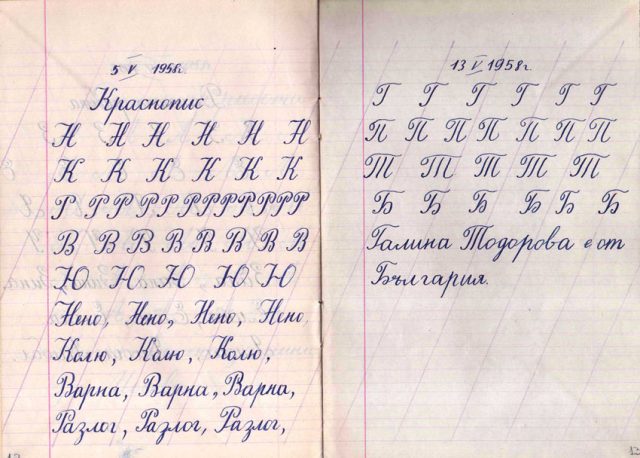 5 V 1958 г.
Краснопис
Н Н Н Н Н Н
К К К К К К
Р Р Р Р Р Р Р Р Р Р Р
В В В В В В В В
Ю Ю Ю Ю Ю
Нено, Нено, Нено, Нено,
Колю, Колю, Колю,
Варна, Варна, Варна,
Разлог, Разлог, Разлог,
13 V 1958 г.
Г Г Г Г Г Г
П П П П П П П
Т Т Т Т Т
Б Б Б Б Б Б
Галина Тодорова е от
България.